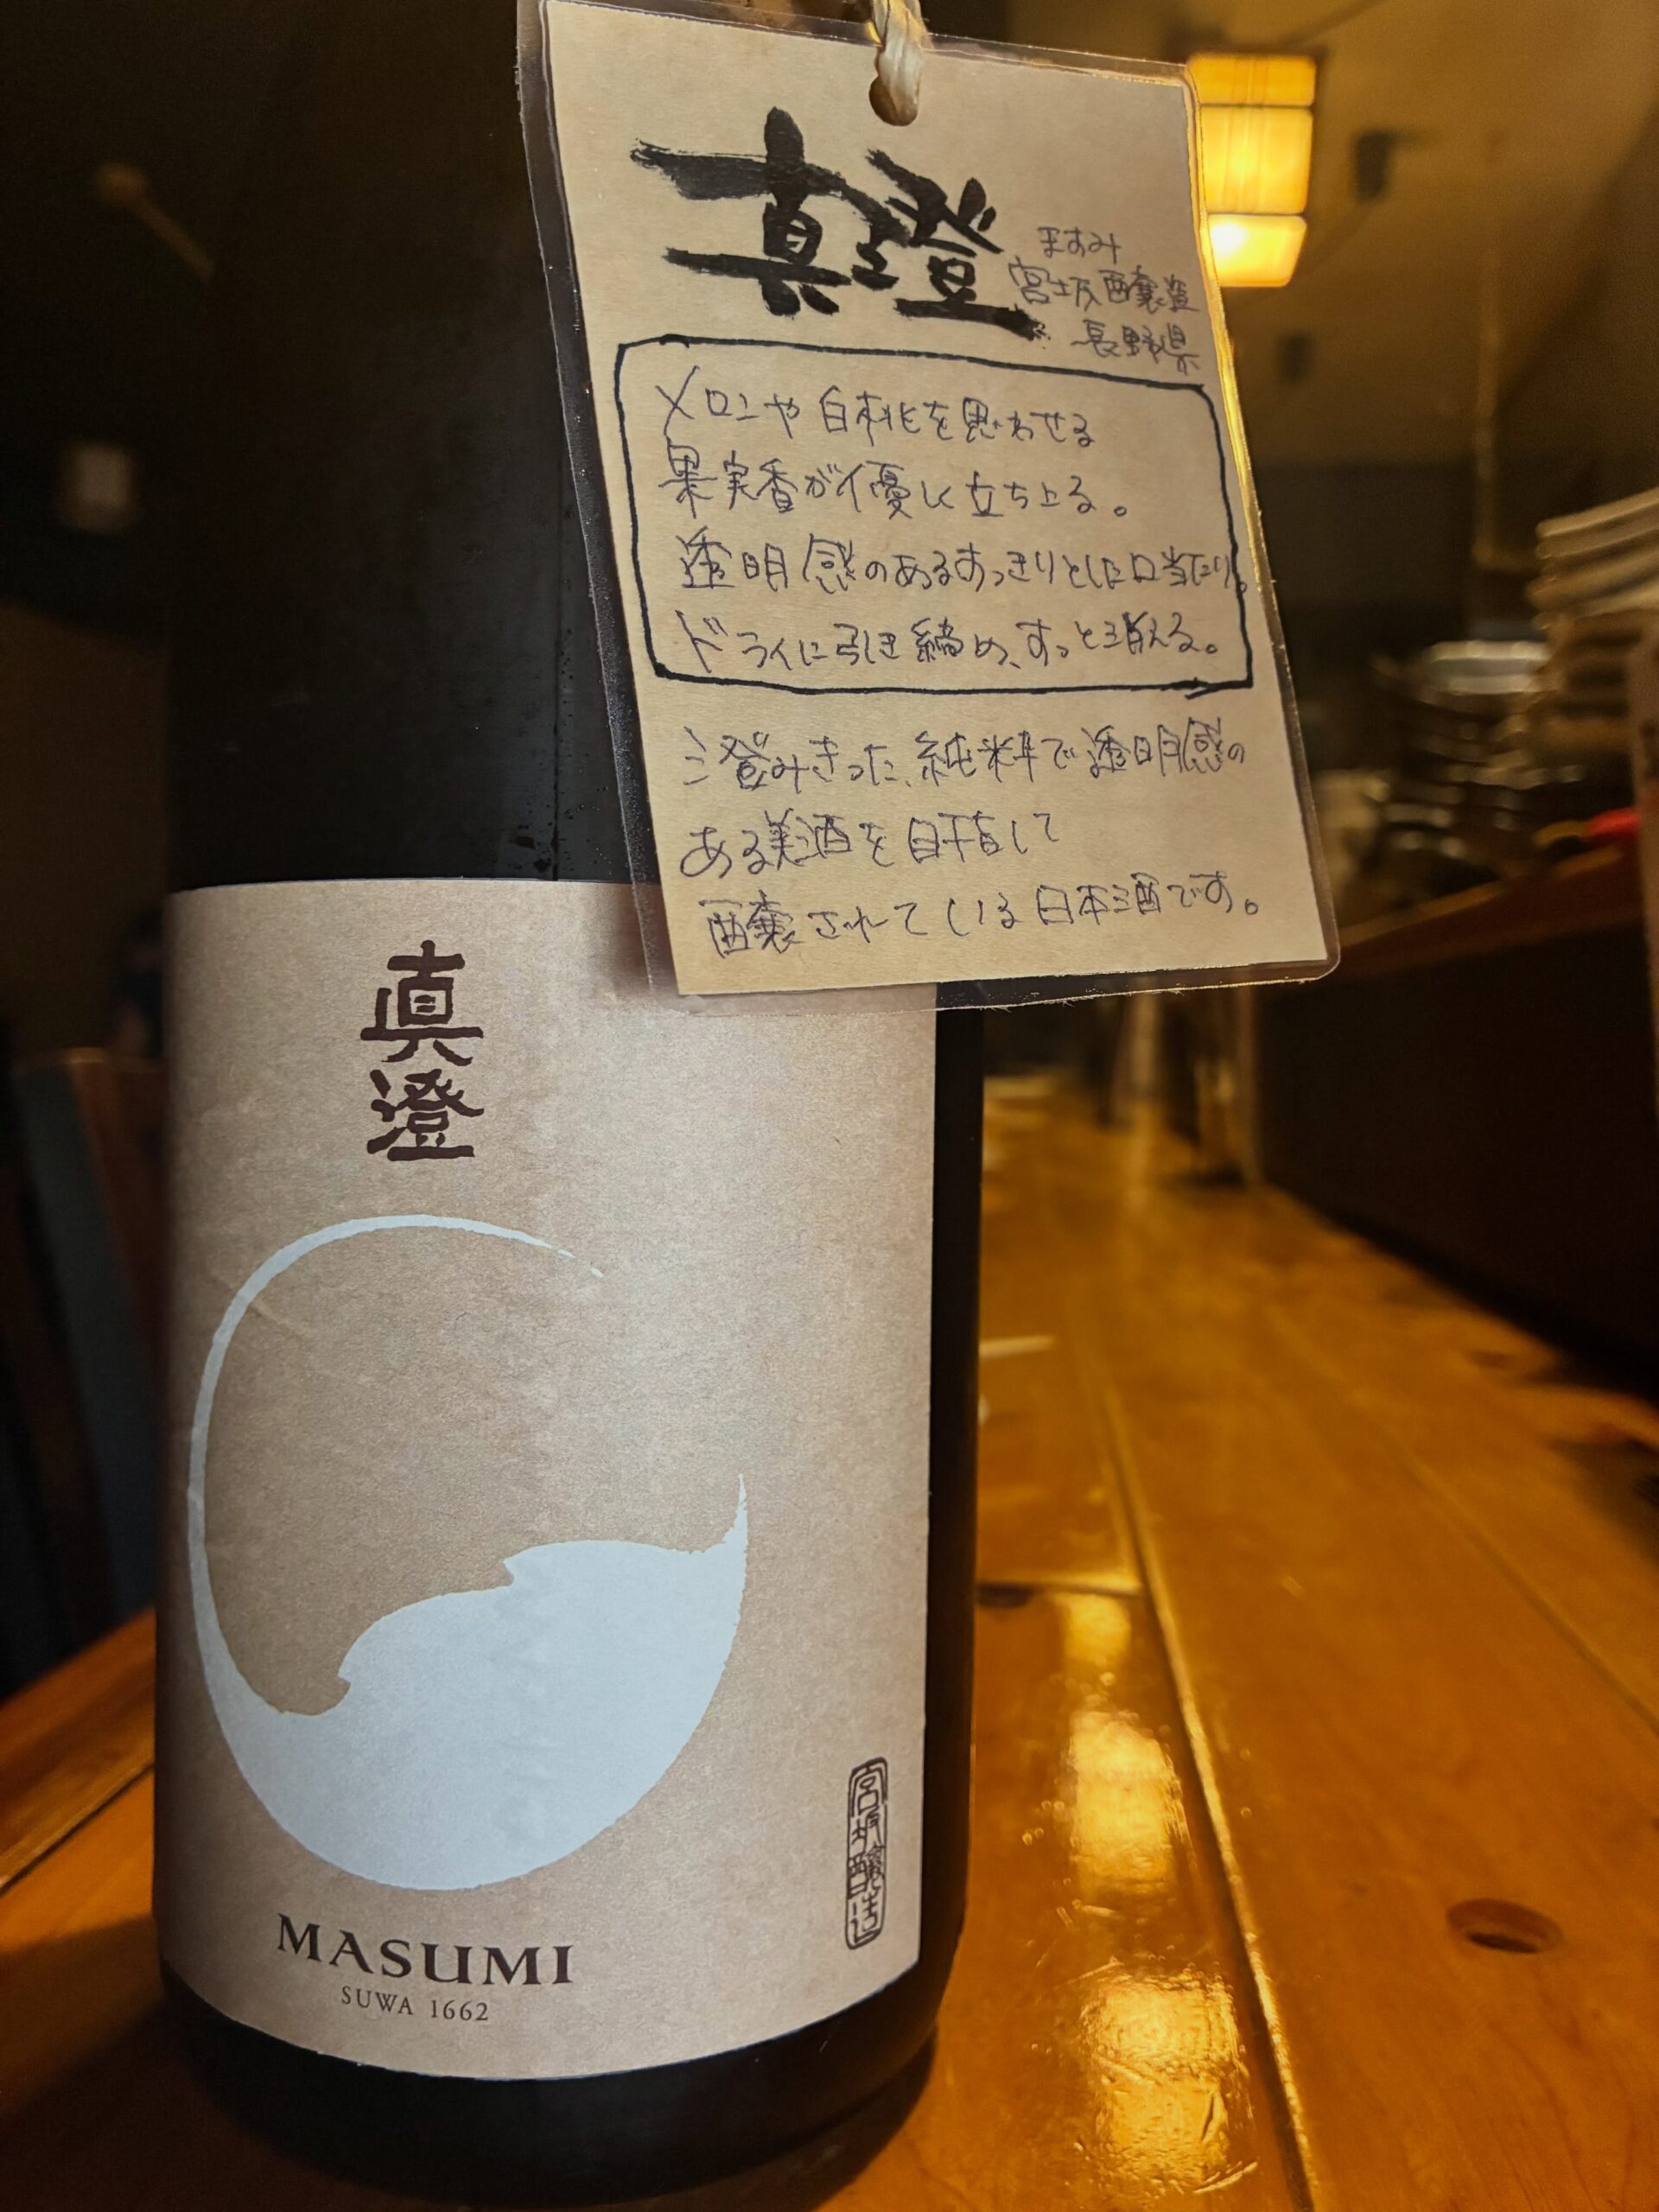 真澄
ますみ
宮坂醸造
長野県
メロンや白桃を思わせる
果実香が優しく立ち上る。
透明感のあるすっきりとした口当たり。
ドライに引き締め、すっと消える。
澄みきった、純粋で透明感の
ある美酒を目指して
醸されている日本酒です。
真澄
宮坂醸造
MASUMI
SUWA 1662